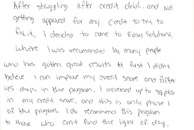 After struggling after credit denial and not
getting approved for any credit to try to
fix it, I decided to came to Fason Solutions.
Where I was recommended by many people
who has gotten great results at first I didn't
believe I can improve my credit score and after
45 days in the program, I increased up to points
in my credit score, and this is only phase 1
of the program. I do recommend this program
to those who can't find the light of day.